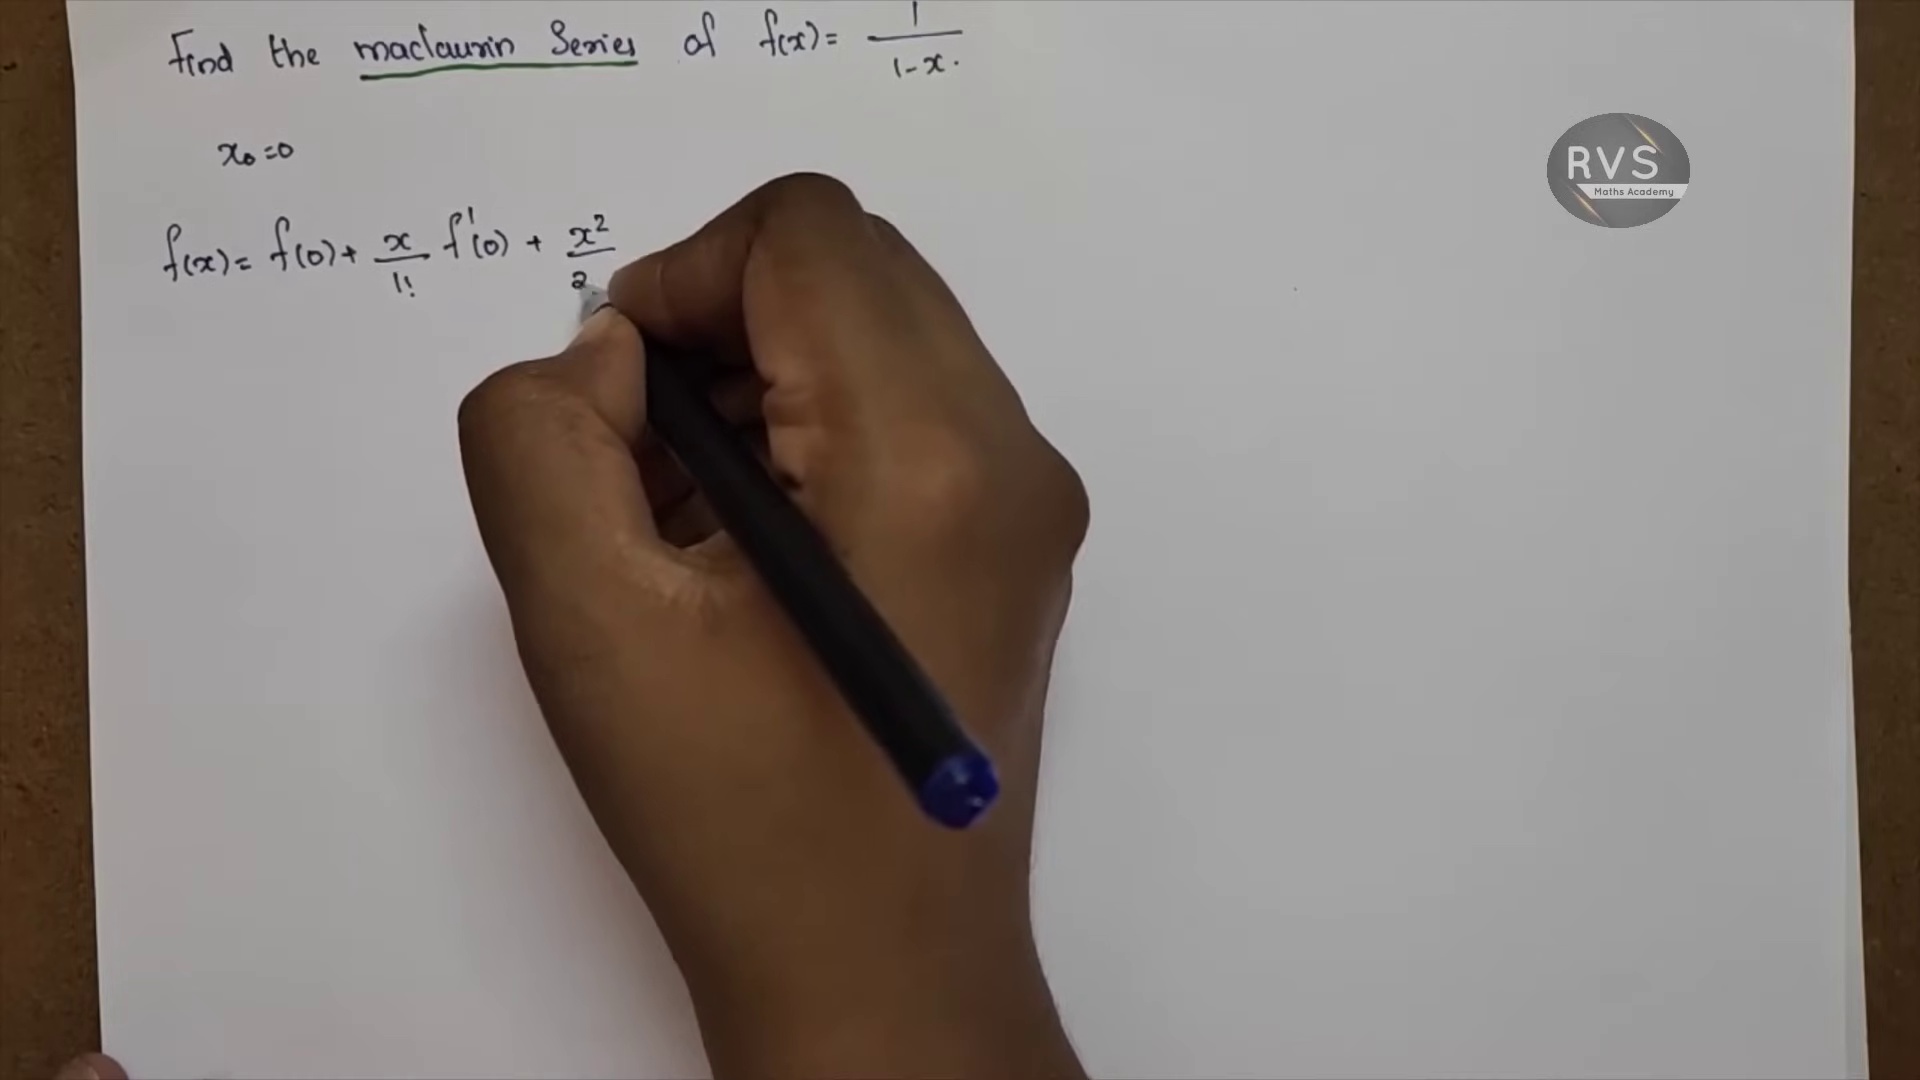 Find the maclaurin Series of f(x)= 1/1-x.
x₀=0
f(x)= f(0)+ x/1! f'(0) + x²/2
RVS
Maths Academy